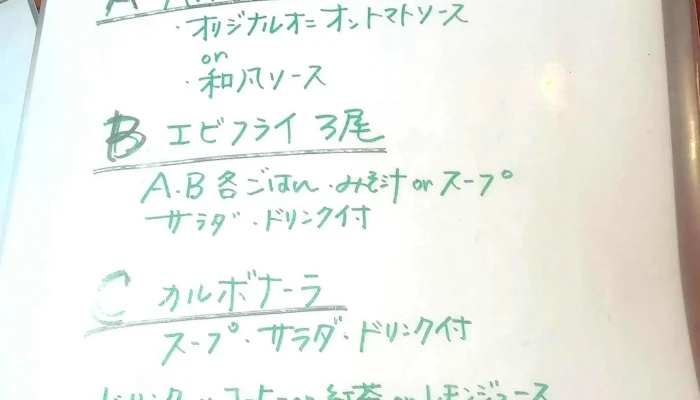 A
・オリジナルオニオントマトソース
or
・和風ソース
B エビフライ 3尾
A.B 各ごはん・みそ汁 or スープ
サラダ・ドリンク付
C カルボナーラ
スープ・サラダ・ドリンク付
ドリンク コーヒー or 紅茶 or レモンジュース